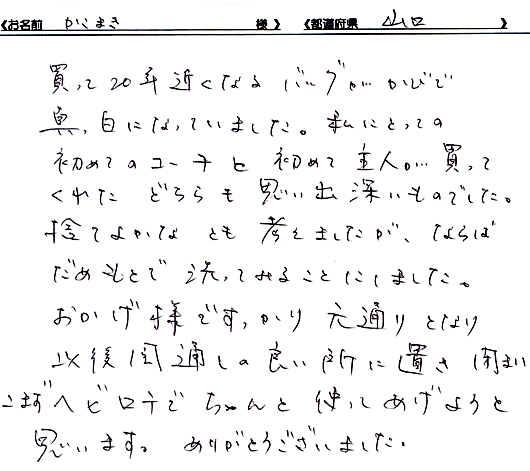 《お名前 かこまき 様》 《都道府県 山口 》
買って20年近くなるバッグがかびで
真,白になっていました。私にとっての
初めてのコーチと初めて主人が買って
くれたどちらも思い出深いものでした。
捨てよかなとも考えましたが、ならば
だめもとで洗ってみることにしました。
おかげ様ですっかり元通りとなり
以後風通しの良い所に置き閉まい
こまずヘビロテでちゃんと使ってあげようと
思います。ありがとうございました。